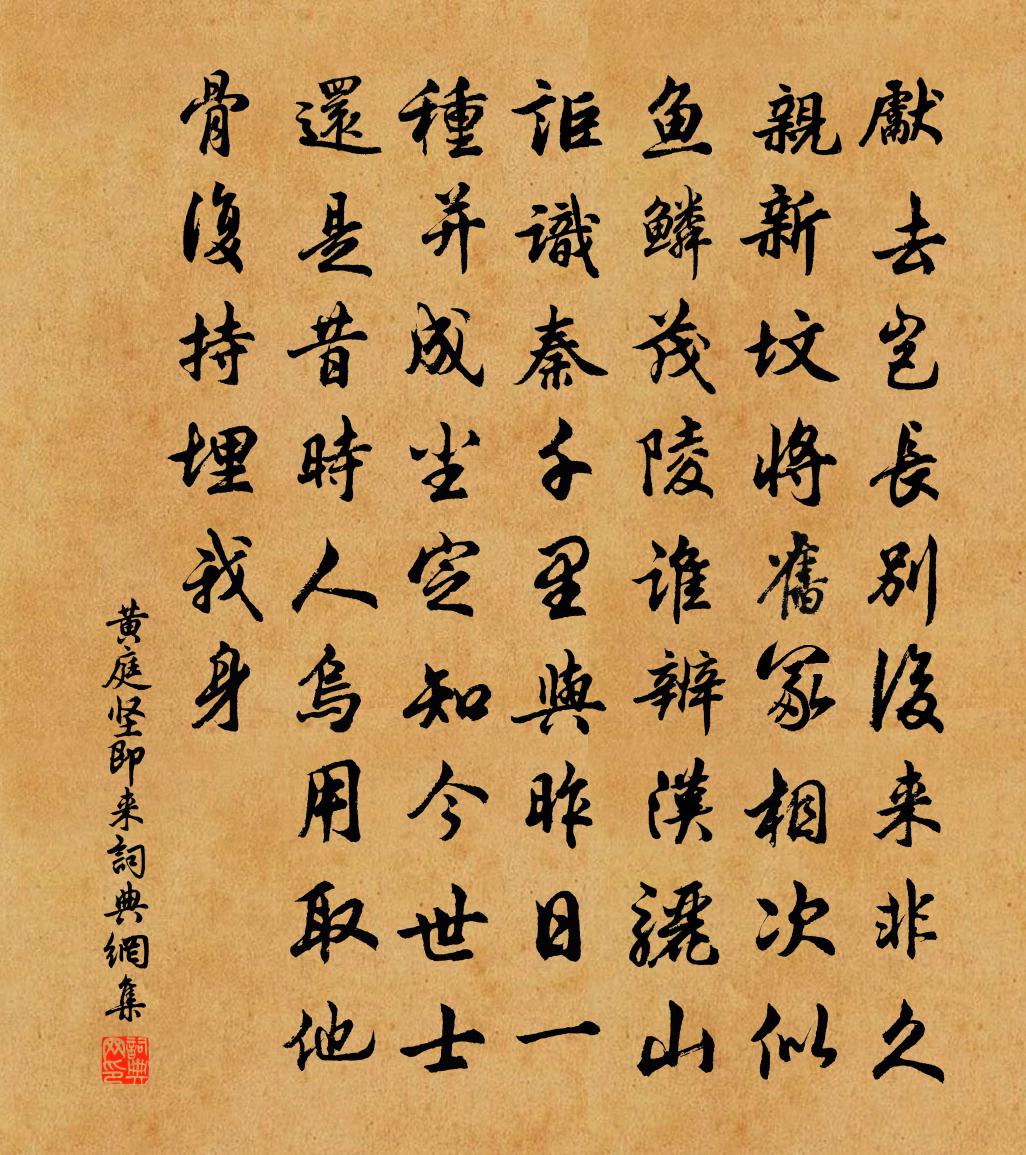 獻去豈長別後来非久
親新坟將舊冢相次似
魚鱗茂陵誰辨漢驪山
詎識秦千里與昨日一
種并成尘定知今世士
還是昔時人焉用取他
骨復持埋我身
黄庭坚即来詞典網集
詞典网印